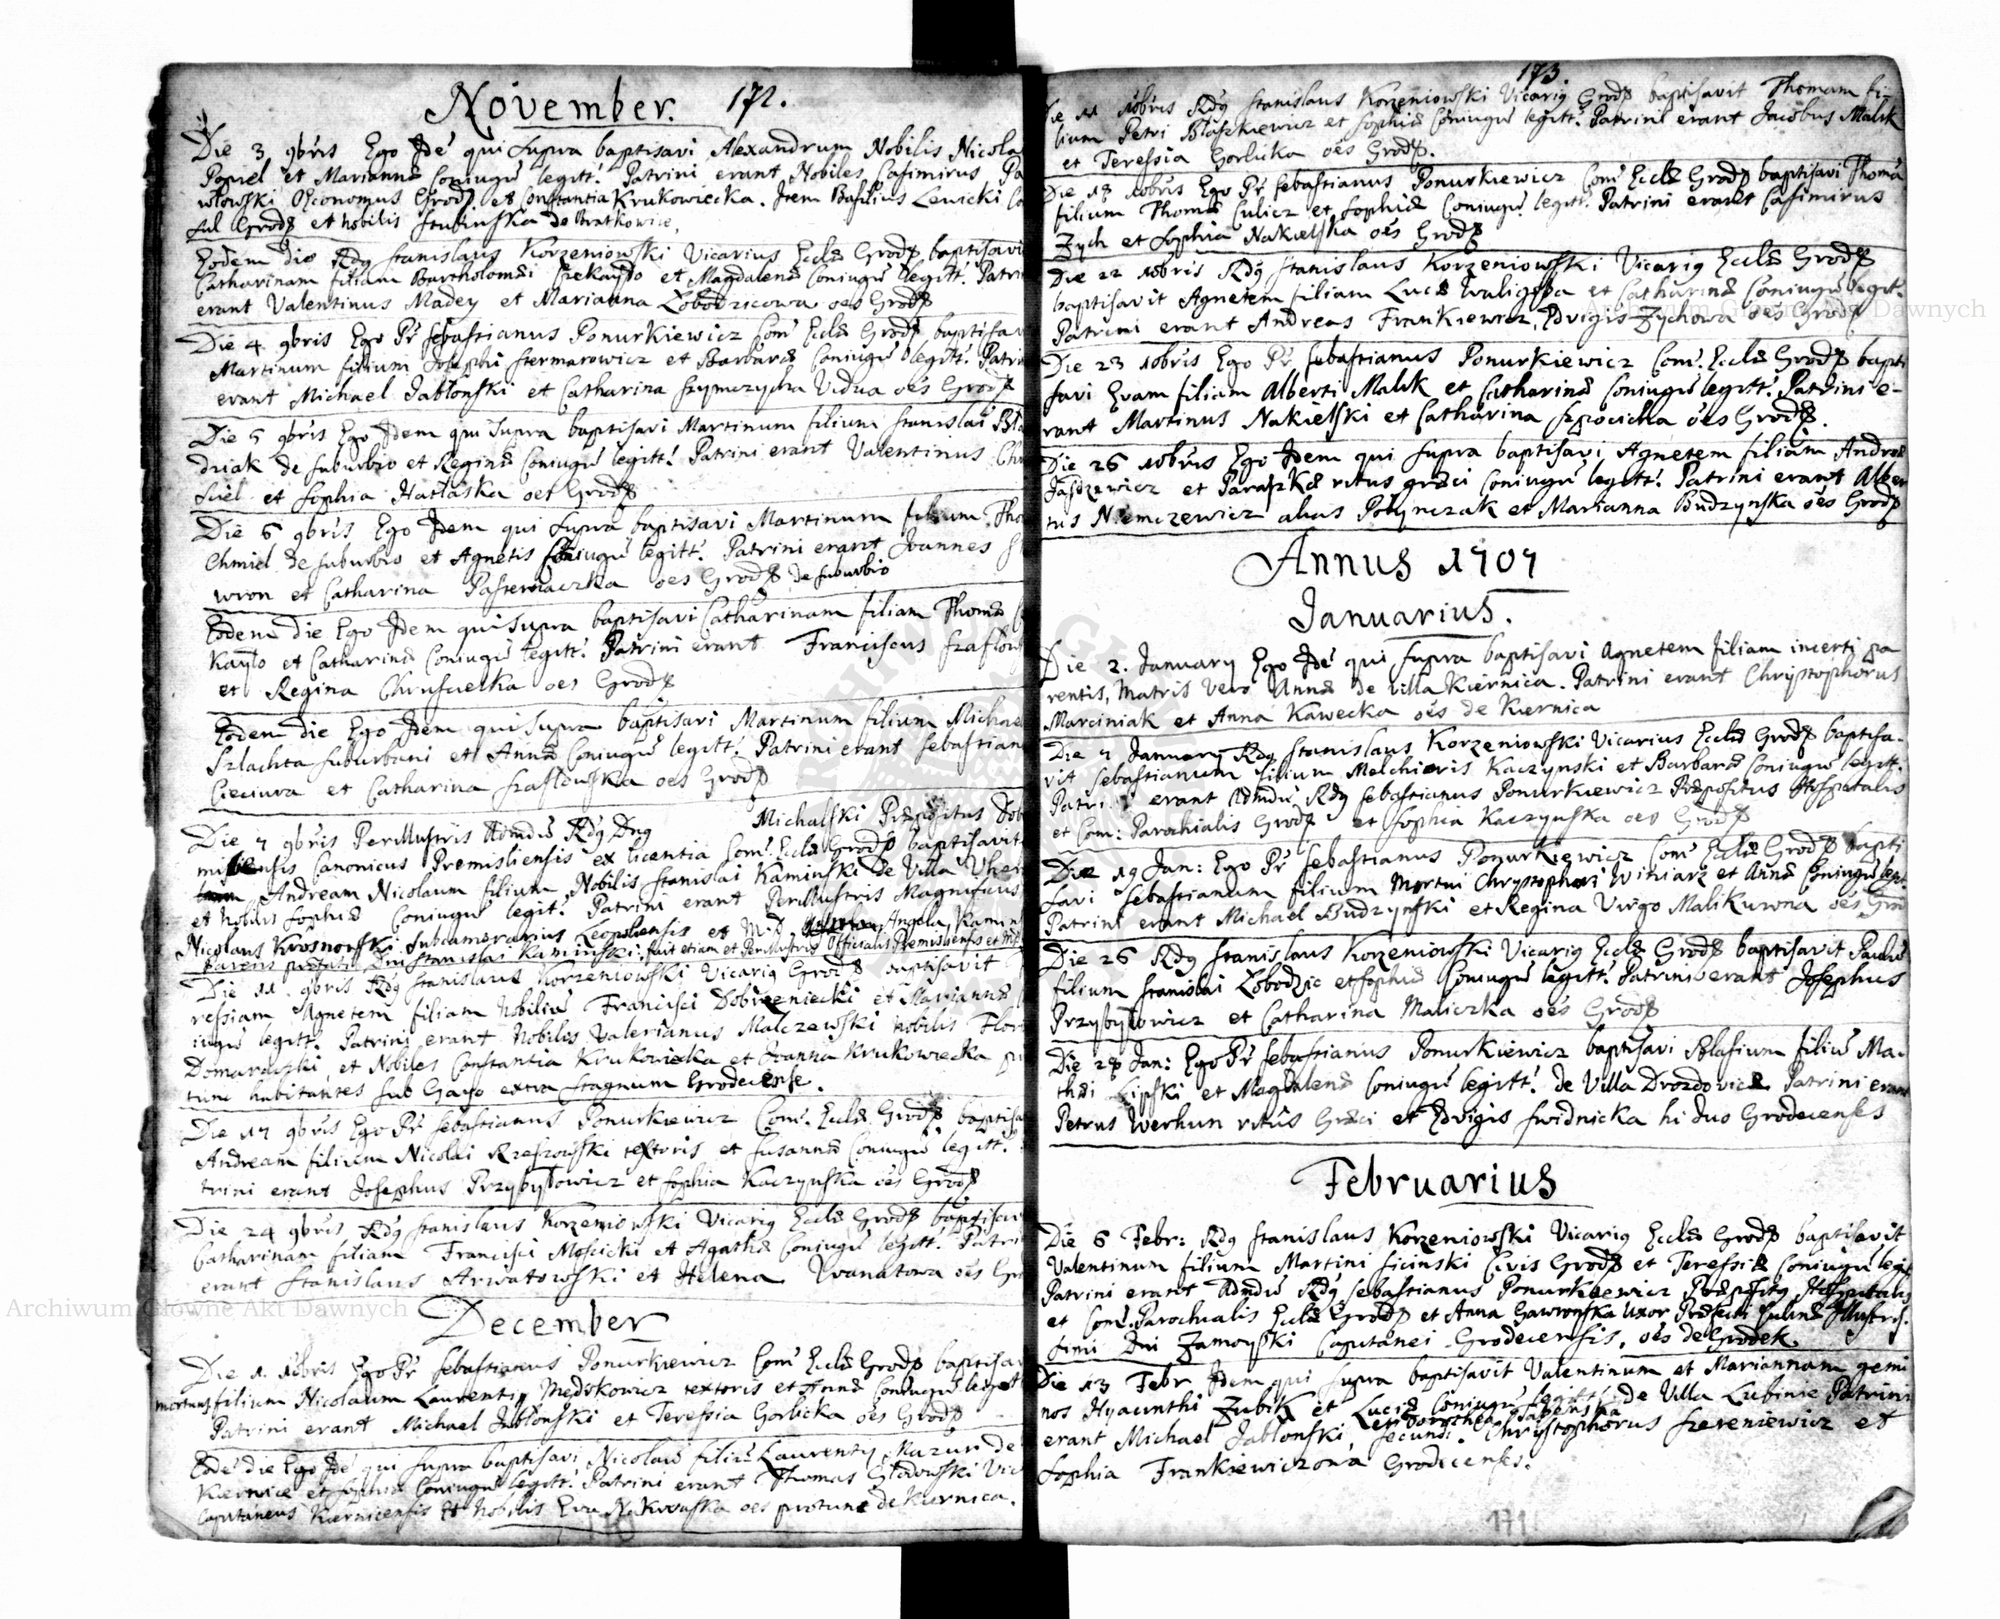 November. 172.
Die 3 9bris Ego Idē qui supra baptisavi Alexandrum Nobilis Nicolai
Popiel et Mariannæ Coniugū legitt: Patrini erant Nobiles Casimirus Pa
włowski Oeconomus Grod. et Constantia Krukowiecka. Item Basilius Lewicki
Grod et nobilis de Bratkowice.
Eodem die Rdg Stanislaus Korzeniowski Vicarius Eccle Grod baptisavi
Catharinam filiam Bartholomæi et Magdalenæ Coniugū legitt. Patri
erant Valentinus Madey et Marianna Łobodzicowa oes Grod
Die 4 9bris Ego Pr Sebastianus Ponurkiewicz Com Eccle Grod baptisav
Martinum filium Josephi Stermarowicz et Barbaræ Coniugū legitt: Patri
erant Michael Jabłonski et Catharina Szymczycha Vidua oēs Grod
Die 5 9bris Ego Idem qui supra baptisavi Martinum filium Stanislai
driak de suburbio et Reginæ Coniugū legitt: Patrini erant Valentinus
et Sophia oes Grod
Die 6 9bris Ego Idem qui supra baptisavi Martinum filium Tho
Chmiel de suburbio et Agnetis Coniugū legitt: Patrini erant Joannes
wron et Catharina Pasternaczka oes Grod de suburbio
Eodem die Ego Idem qui supra baptisavi Catharinam filiam Thomæ
Kayło et Catharinæ Coniugū legitt: Patrini erant Franciscus
et Regina oes Grod
Eodem die Ego Idem qui supra baptisavi Martinum filium Michae
Szlachta suburbani et Annæ Coniugū legitt: Patrini erant Sebastian
Cieciura et Catharina Szaflowska oes Grod
Die 7 9bris Perillustris Admdū Rdg Dng Michalski Præpositus Dob
Canonicus Premisliensis ex licentia Com Eccle Grod baptisavit
Andream Nicolaum filium Nobilis Stanislai Kaminski de Villa
et Nobilis Sophiæ Coniugū legit: Patrini erant Perillustris Magnificus
Nicolaus Krosnowski Subcamerarius Leopoliensis et Angela Kamin
Dni Stanislai Kaminski: fuit etiam et Perillustris Officialis Premisliensis et
Die 11. 9bris Rdg Stanislaus Korzeniowski Vicarig Grod baptisavit
ressiam Agnetem filiam Nobiliū Francisci Dobrzeniecki et Mariannæ
iugū legitt. Patrini erant Nobilis Valerianus Malczewski Nobilis Flor
et Nobiles Constantia Krukowiecka et Joanna Krukowiecka
tunc habitantes sub Gayo extra stagnum Grodecense.
Die 17 9bris Ego Pr Sebastianus Ponurkiewicz Com: Eccle Grod baptisa
Andream filium Nicolai Rzeszowski textoris et Susannæ Coniugū legitt.
trini erant Josephus Przybyłowicz et Sophia Kaczynska oēs Grod
Die 24 9bris Rdg Stanislaus Korzeniowski Vicarig Eccle Grod baptisav
Catharinam filiam Francisci Moscicki et Agathæ Coniugū legitt: Patri
erant Stanislaus Arwatowski et Helena Iwanatowa oēs Gro
December
Die 1. 10bris Ego Pr Sebastianus Ponurkiewicz Com Eccle Grod baptisav
filium Nicolaum Laurentij Medekowicz textoris et Annæ Coniugū legitt
Patrini erant Michael Jabłonski et Teressia Gorlicka oēs Grod
Eodē die Ego Idē qui supra baptisavi Nicolaū filiū Laurentij Mazur de
Kiernice et Sophiæ Coniugū legitt: Patrini erant Thomas Głodowski Vice
Capitaneus Kiernicensis et Nobilis Eva oes protunc de Kiernica.
173.
Die 11 10bris Rdg Stanislaus Korzeniowski Vicarig Grod baptisavit Thomam fi-
lium Petri Błaszkiewicz et Sophiæ Coniugū legitt: Patrini erant Jacobus Malik
et Teressia Gorlicka oēs Grod.
Die 18 10bris Ego Pr Sebastianus Ponurkiewicz Com Eccle Grod baptisavi Thomā
filium Thomæ Culicz et Sophiæ Coniugū legitt: Patrini erant Casimirus
Zych et Sophia Nakielska oēs Grod
Die 22 10bris Rdg Stanislaus Korzeniowski Vicarig Eccle Grod
baptisavit Agnetem filiam Lucæ Waligora et Catharinæ Coniugū legit.
Patrini erant Andreas Frankiewicz, Edvigis Zychowa oēs Grod
Die 23 10bris Ego Pr Sebastianus Ponurkiewicz Com: Eccle Grod bapti
savi Evam filiam Alberti Malik et Catharinæ Coniugū legitt: Patrini e-
rant Martinus Nakielski et Catharina oēs Grod.
Die 26 10bris Ego Idem qui supra baptisavi Agnetem filiam Andreæ
et Paraszkæ ritus græci Coniugū legitt: Patrini erant Alber
tus Niemczewicz alias Połynczak et Marianna Budzynska oēs Grod
Annus 1707
Januarius.
Die 2. January Ego Idē qui supra baptisavi Agnetem filiam incerti pa
rentis, Matris vero Annæ de villa Kiernica. Patrini erant Chrystophorus
Marciniak et Anna Kawecka oēs de Kiernica
Die 7 January Rdg Stanislaus Korzeniowski Vicarius Eccle Grod baptisa-
vit Sebastianum filium Melchioris Kaczynski et Barbaræ Coniugū legitt.
Patrini erant Admdū Rdg Sebastianus Ponurkiewicz Præpositus Hospitalis
et Com: Parochialis Grod et Sophia Kaczynska oes Grod
Die 19 Jan: Ego Pr Sebastianus Ponurkiewicz Com Eccle Grod bapti
savi Sebastianum filium Mortui Chrystophori Witniarz et Annæ Coniugū legt.
Patrini erant Michael Budzynski et Regina Virgo Malikuwna oēs Grod
Die 26 Rdg Stanislaus Korzeniowski Vicarig Eccle Grod baptisavit Paulū
filium Stanislai Łobodzic et Sophiæ Coniugū legitt: Patrini erant Josephus
Przybyłowicz et Catharina Maliczka oēs Grod
Die 28 Jan: Ego Pr Sebastianus Ponurkiewicz baptisavi Blasium filiū Ma-
thæi Lipski et Magdalenæ Coniugū legitt: de Villa Drozdovice Patrini erant
Petrus Werhun ritūs Græci et Edvigis Swidnicka hi duo Grodecenses
Februarius
Die 6 Febr: Rdg Stanislaus Korzeniowski Vicarig Eccle Grod baptisavit
Valentinum filium Martini Sicinski Civis Grod et Teressiæ Coniugū legit
Patrini erant Admdū Rdg Sebastianus Ponurkiewicz Præpositg Hospitalis
et Com: Parochialis Eccle Grod et Anna Gawronska Uxor Præfecti Illustris
simi Dni Zamoyski Capitanei Grodecensis, oēs de Grodek.
Die 13 Febr Idem qui supra baptisavit Valentinum et Mariannam gemi
nos Hyacinthi Zubik et Luciæ Coniugū legitt: de Villa Lubinie Patrini
erant Michael Jablonski, et Dorothea secundi Chrystophorus Szereniewicz et
Sophia Frankiewiczowa Grodecenses.
171
Archiwum Główne Akt Dawnych
Archiwum Główne Akt Dawnych